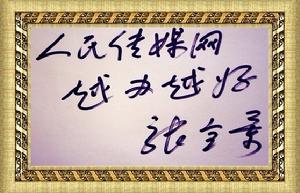 人民传媒网
越办越好
张全景